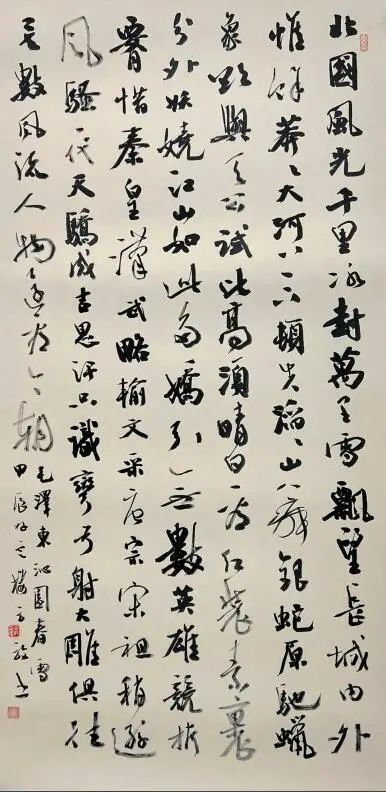 北國風光千里冰封萬里雪飄望長城內外
惟餘莽々大河上下頓失滔々山舞銀蛇原馳蠟
象欲與天公試比高須晴日看紅裝素裹
分外妖嬈江山如此多嬌引無數英雄競折
腰惜秦皇漢武略輸文采唐宗宋祖稍遜
風騷一代天驕成吉思汗只識彎弓射大雕俱往
矣數風流人物還看今朝
毛澤東沁園春雪
甲辰